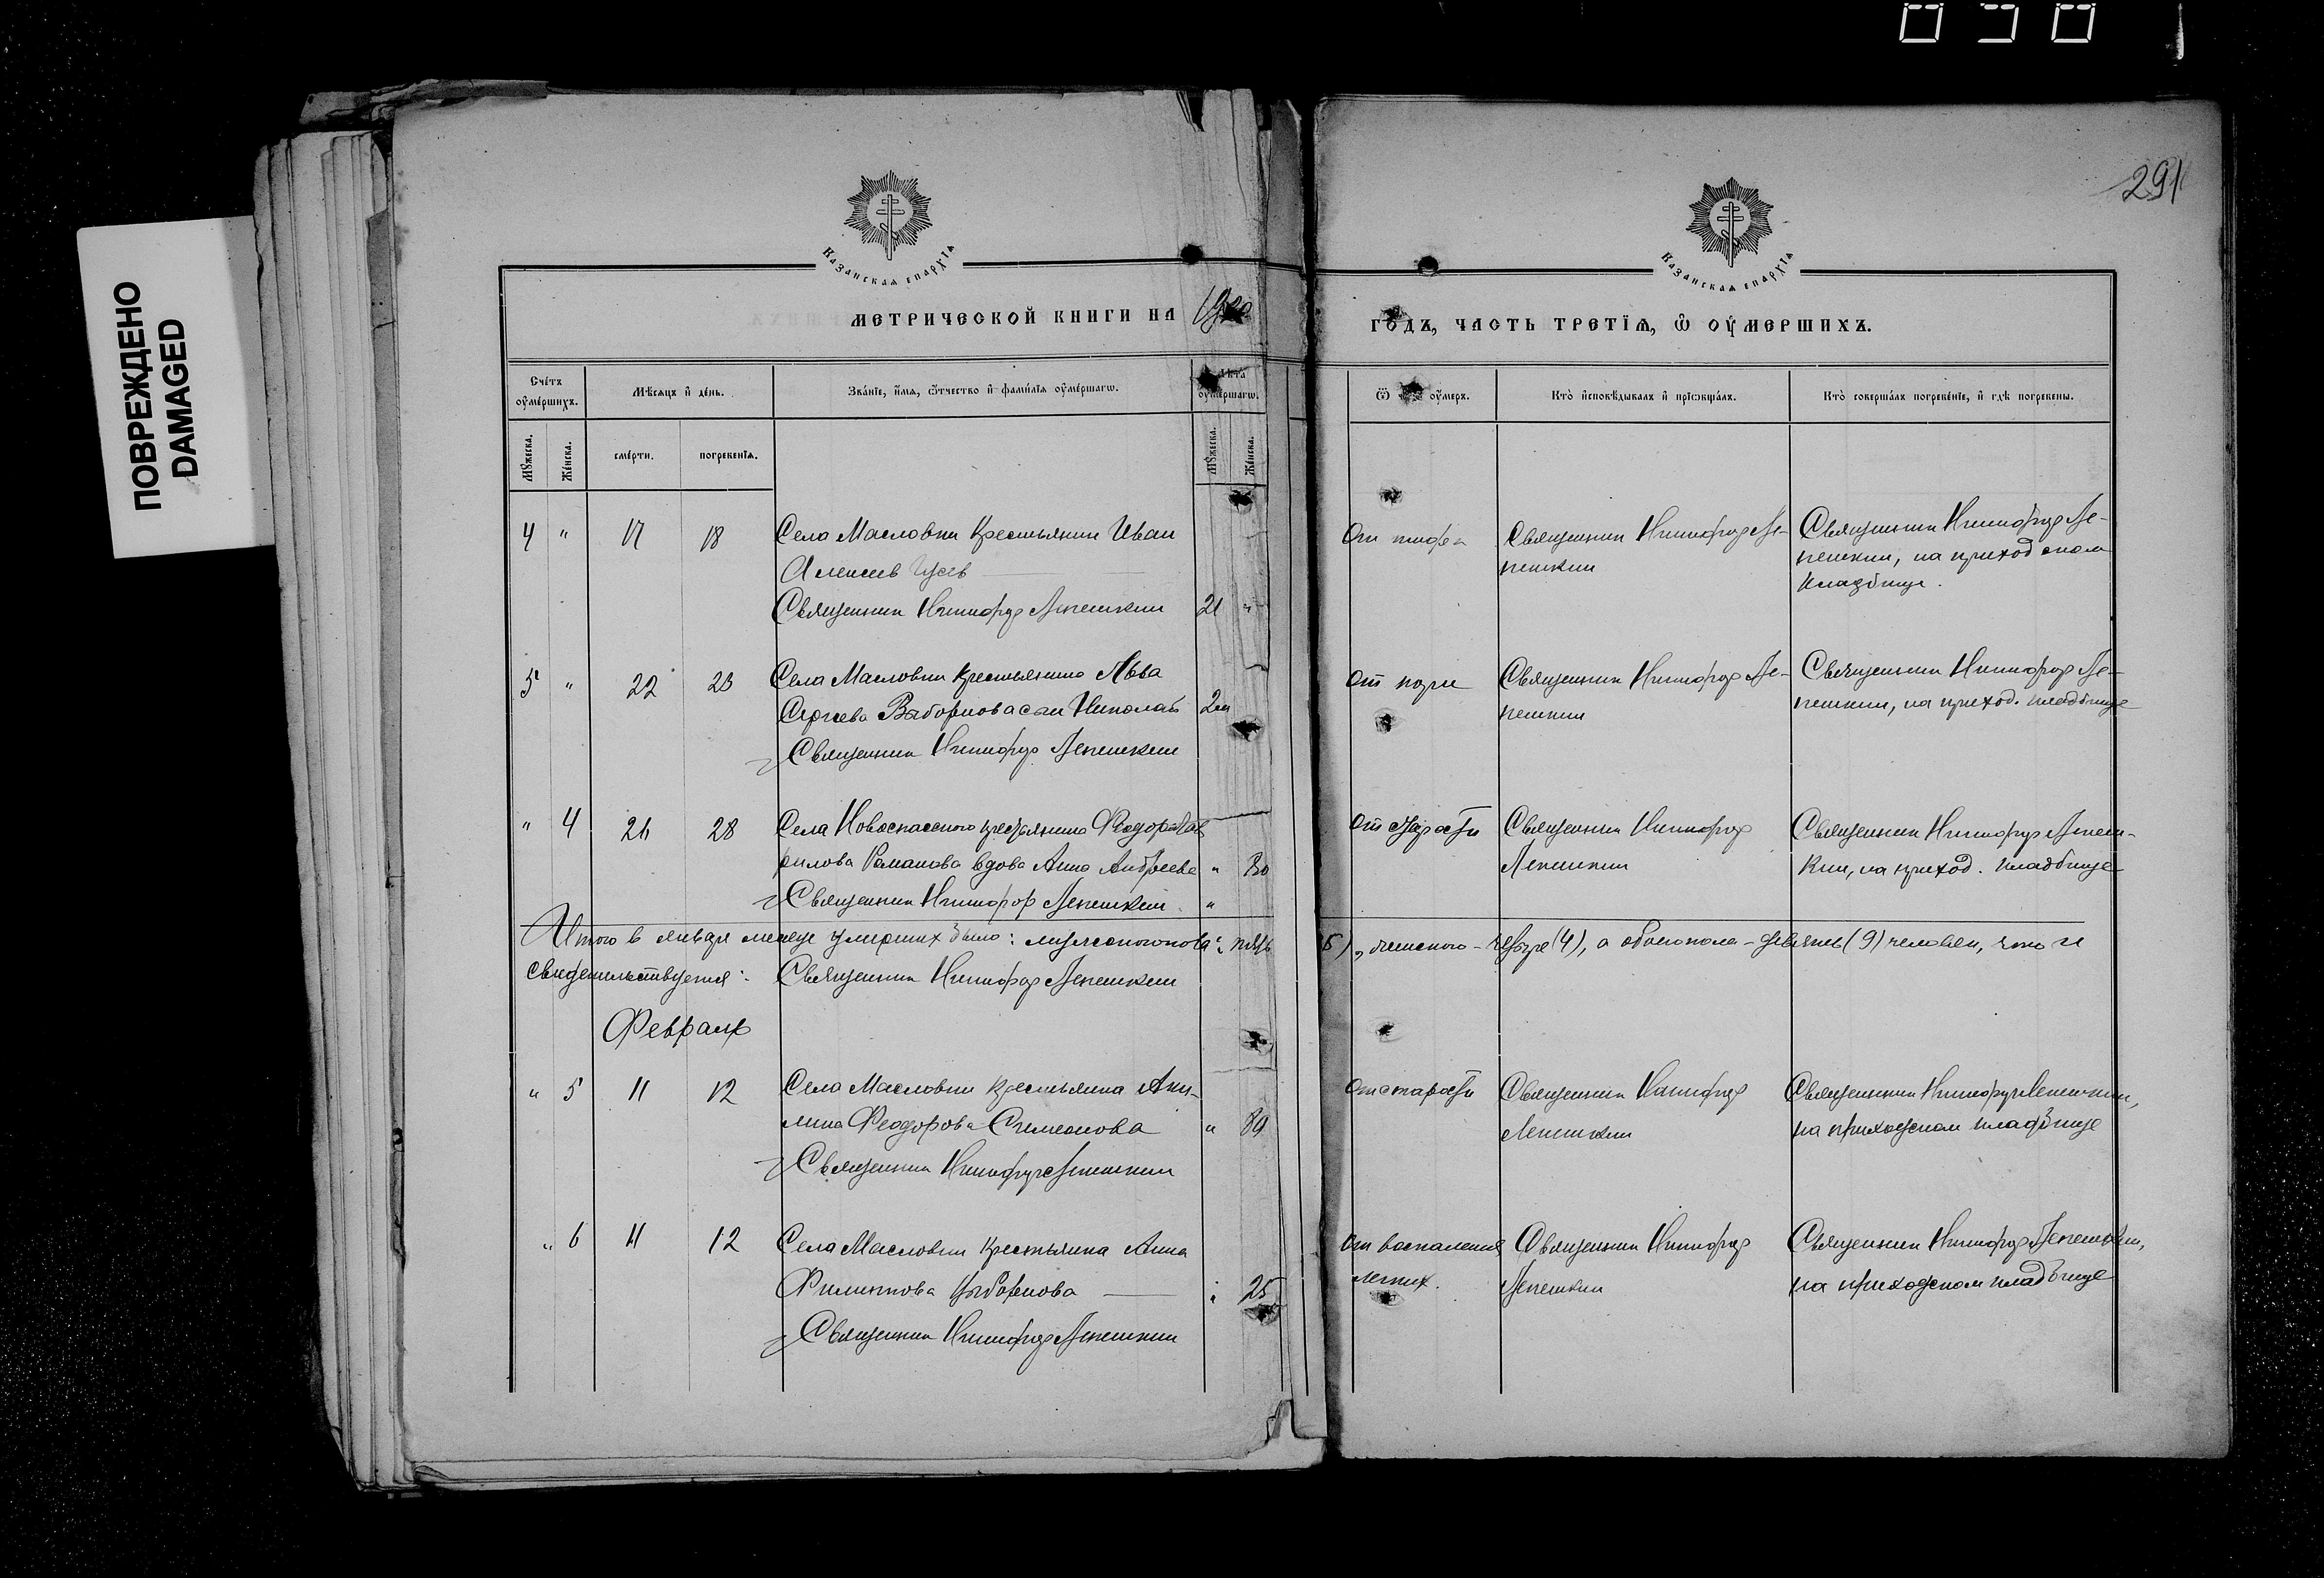 ПОВРЕЖДЕНО
DAMAGED
291
Казанская епархїѧ
Казанская епархїѧ
МЕТРИЧЕСКОЙ КНИГИ НА 1920
ГОДЪ, ЧАСТЬ ТРЕТЇѦ, Ѿ ОУМЕРШИХЪ.
Счетъ оумершихъ.
Мѣсяцъ и день.
Званїе, имя, отчество и фамилїя оумершагѡ.
Лѣта оумершагѡ.
Ѿ оумеръ.
Кто исповѣдывалъ и прїѡбщалъ.
Кто совершалъ погребенїе, и гдѣ погребены.
Мꙋжеска.
Женска.
смерти.
погребенїя.
Мꙋжеска.
Женска.
4 " 17 18 Села Масловки крестьянин Иван
Алексеев Гусев
Священник Никифор Лепешкин 21 "
От тифа
Священник Никифор Ле-
пешкин
Священник Никифор Ле-
пешкин, на приходском
кладбище.
5 " 22 23 Села Масловки крестьянина Льва
Сергеева Выборнова сын Николай 2м
Священник Никифор Лепешкин
От кори
Священник Никифор Ле-
пешкин
Священник Никифор Ле-
пешкин, на приход. кладбище
" 4 26 28 Села Новоспасского крестьянина Феодора Гав
рилова Романова вдова Анна Андреева " 80
Священник Никифор Лепешкин "
От старости
Священник Никифор
Лепешкин
Священник Никифор Лепеш-
кин, на приход. кладбище
Итого в январе месяце умерших было: мужского пола: пять (5), женского - четыре (4), а обоего пола - девять (9) человек, что и
свидетельствуется: Священник Никифор Лепешкин
Февраль
" 5 11 12 Села Масловки крестьянка Аки-
лина Феодорова Симеонова " 89
Священник Никифор Лепешкин
От старости
Священник Никифор
Лепешкин
Священник Никифор Лепешкин,
на приходском кладбище
" 6 11 12 Села Масловки крестьянка Анна
Филиппова Выборнова " 25
Священник Никифор Лепешкин
От воспаления
легких.
Священник Никифор
Лепешкин
Священник Никифор Лепешкин,
на приходском кладбище